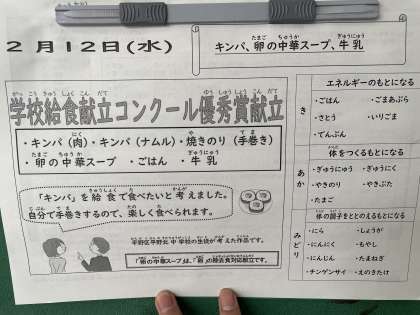 2月12日(水)
キンパ、卵の中華スープ、牛乳
学校給食献立コンクール優秀賞献立
・キンパ(肉)・キンパ(ナムル)・焼きのり(手巻き)
・卵の中華スープ ・ごはん ・牛乳
「キンパ」を給食で食べたいと考えました。
自分で手巻きするので、楽しく食べられます。
平野区平野北中学校の生徒が考えた作品です。
「卵の中華スープ」は、「卵」の除去食対応献立です。
エネルギーのもとになる
き
・ごはん ・ごまあぶら
・さとう ・いりごま
・でんぷん
体をつくるもとになる
あか
・ぎゅうにゅう ・ぎゅうにく
・やきのり ・やきぶた
・たまご
体の調子をととのえるもとになる
みどり
・にら ・しょうが
・にんにく ・もやし
・にんじん ・たまねぎ
・チンゲンサイ ・えのきたけ